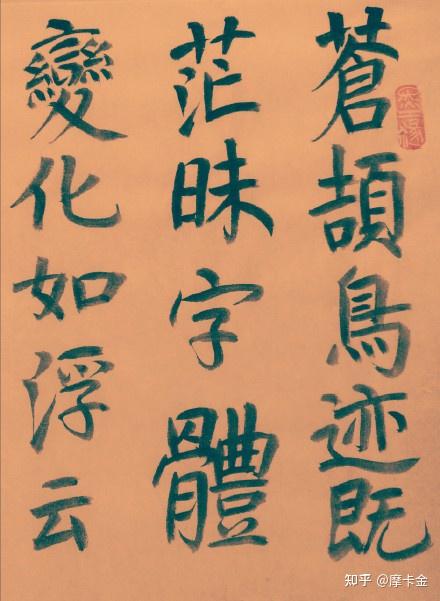 蒼頡鳥迹既
茫昧字體
變化如浮云
知乎 @摩卡金